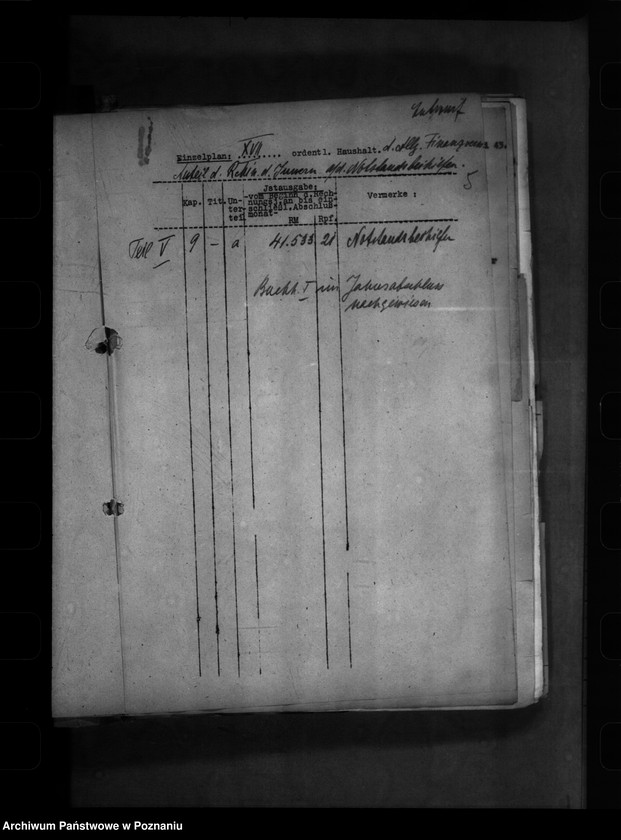 Entwurf
Einzelplan: XVII.... ordentl. Haushalt. d. Allg. Finanzverw. 43.
Anteil d. d. Innern Notstandsbeihilfen.
5
Kap. Tit. Un-ter-teil Istausgabe: vom Beginn d. Rech-nungsj. an bis ein-schliessl. Abschluß-monat- RM Rpf. Vermerke :
Teil V 9 – a 41.533 21 Notstandsbeihilfen
Buchh. V im Jahresabschluss
nachgewiesen
Archiwum Państwowe w Poznaniu